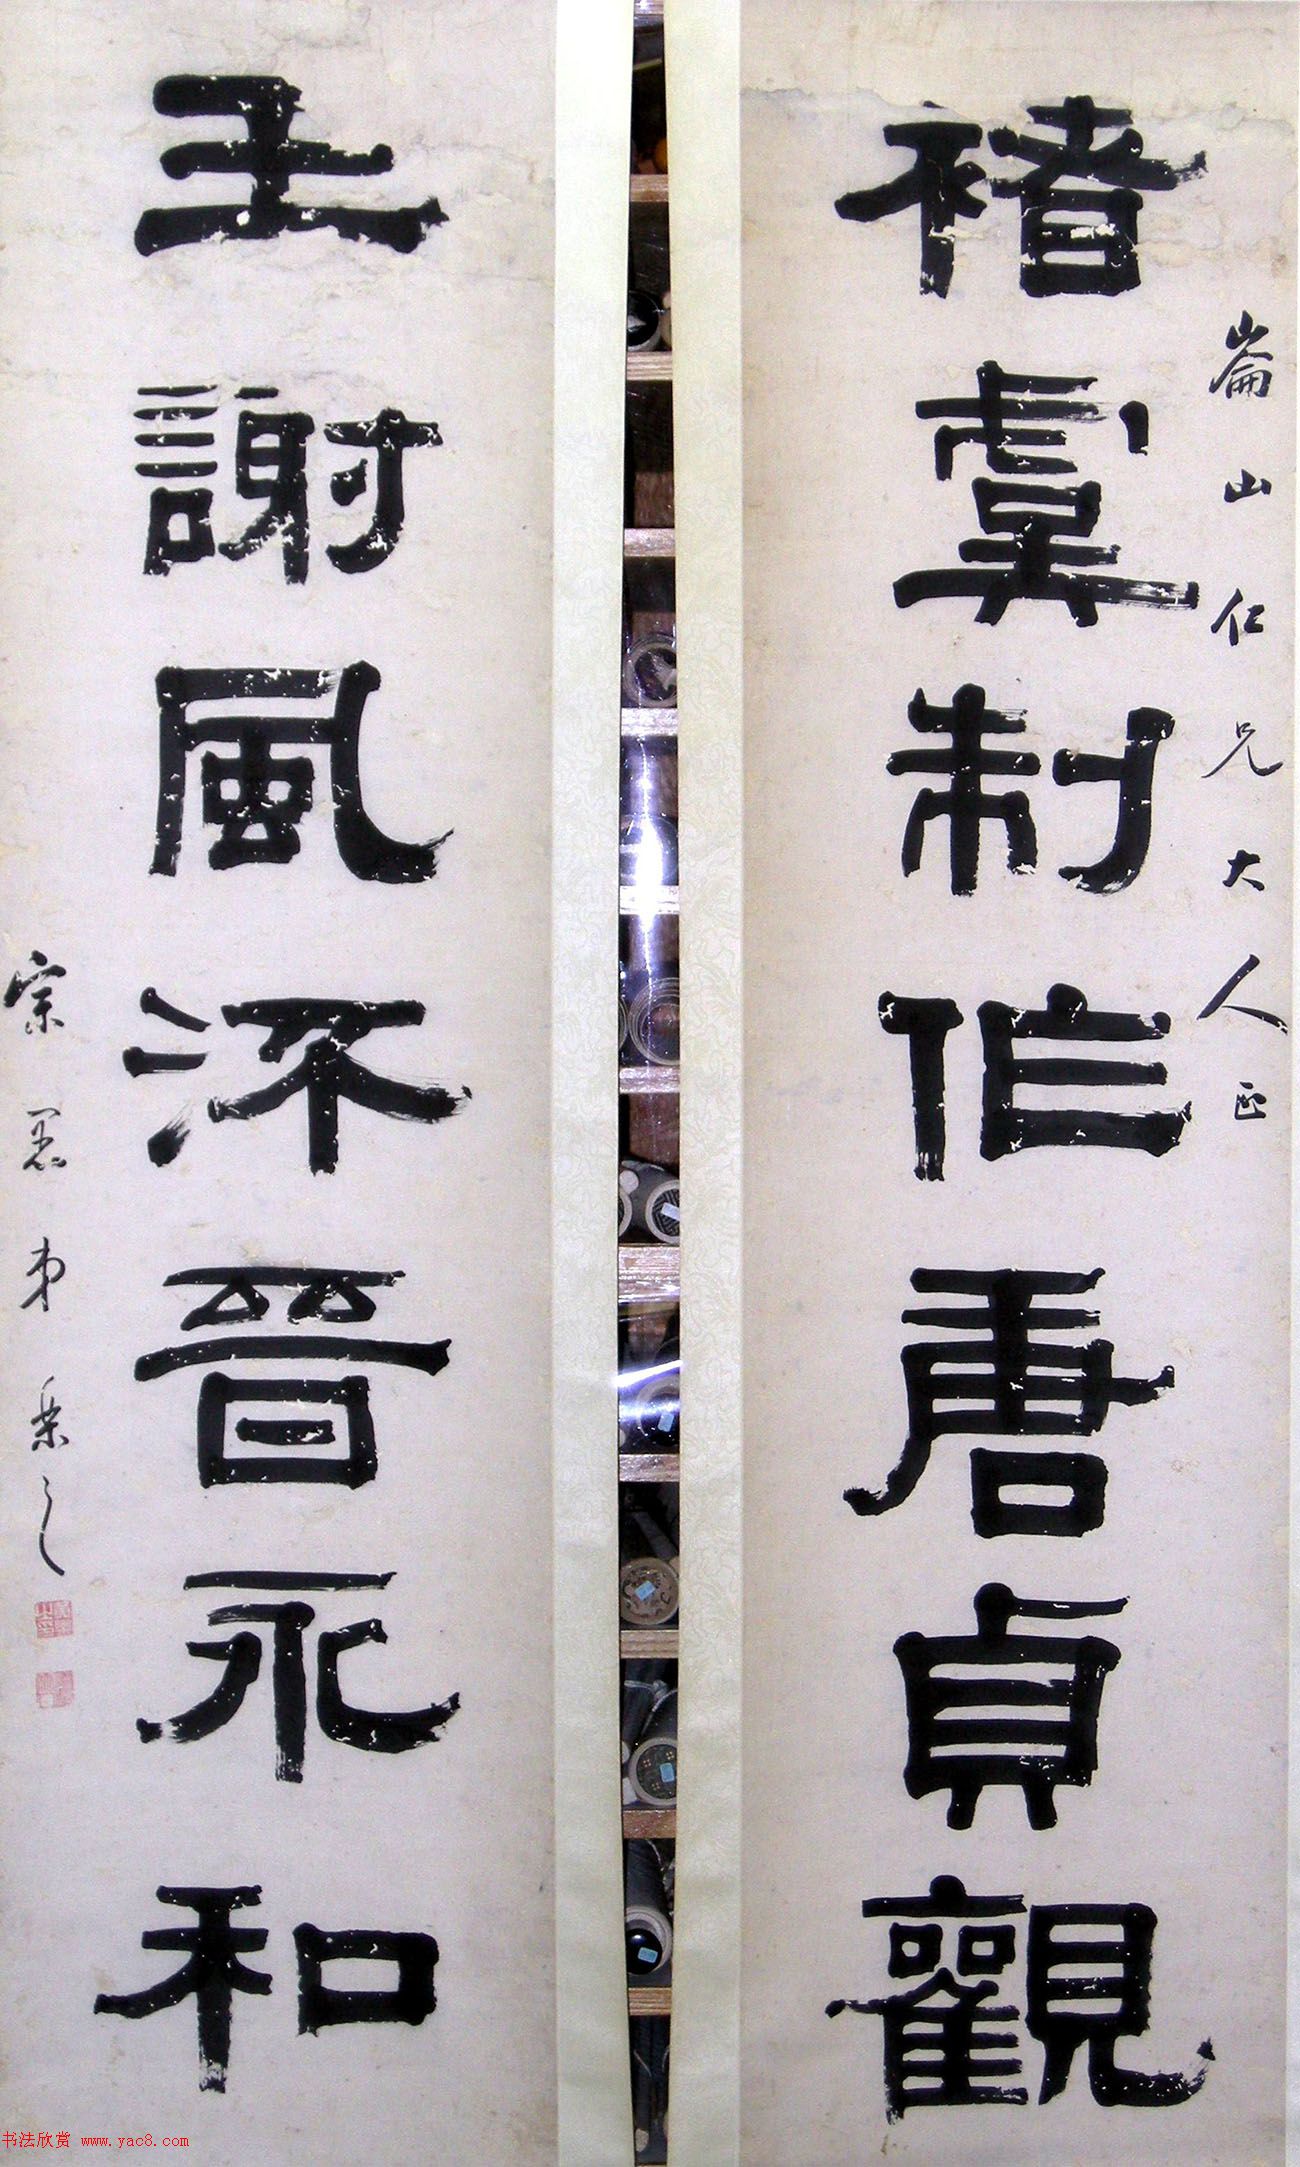 崙山仁兄大人正
褚虞制作唐貞觀
王謝風流晉永和
宗愚弟
书法欣赏 www.yac8.com